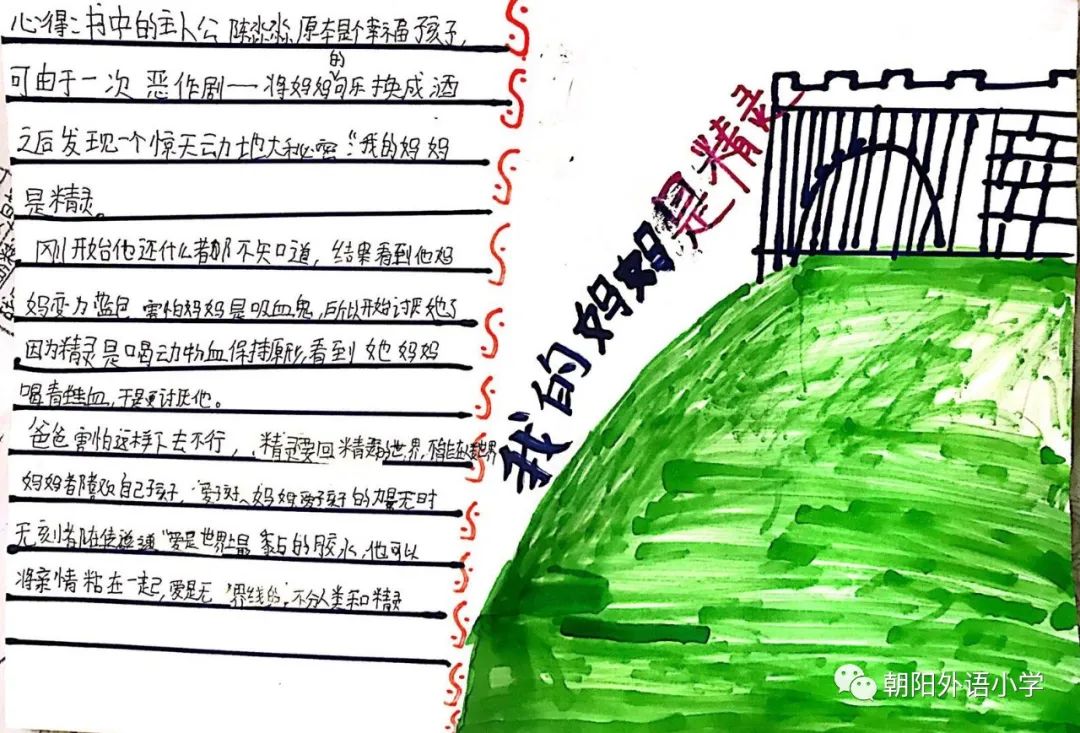 心得：书中的主人公陈淼淼原本是个幸福孩子，
可由于一次恶作剧——将妈妈的可乐换成酒
之后发现一个惊天动地大秘密："我的妈妈
是精灵。
刚开始他还什么都不知道，结果看到他妈
妈变为蓝色害怕妈妈是吸血鬼，所以开始讨厌她了
因为精灵是喝动物血保持原形，看到她妈妈
喝青蛙血，于是更讨厌他。
爸爸害怕这样下去不行，精灵要回精灵的世界，不能在人类世界
妈妈都喜欢自己孩子，爱子女，妈妈爱子女的力量无时
无刻都在传递着"爱是世界上最黏的胶水，他可以
将亲情粘在一起，爱是无"界线的"，不分人类和精灵
我的妈妈是精灵
朝阳外语小学